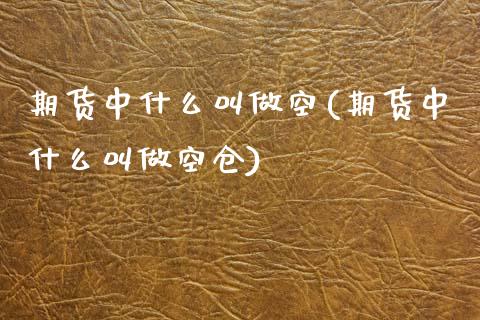 期货中什么叫做空(期货中
什么叫做空仓)